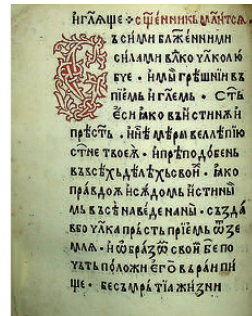 и҆глѧше ⁘ сщ҃енникъ мл҃итсѧ
Съ сими бл҃женними
силами влⷣко чл҃колю
бче · и҆ мы̀ грѣшнїи въ
пїемь и҆ глѥмь · ст҃ь
е҆си ꙗ҆ко въ истинꙋ и҆
прѣст҃ь · и҆ нѣ мѣры великѣпїю
ст҃ине твоеѧ · и҆ прѣподобень
въ всѣхь дѣлѣхь свои · ꙗ҆ко
правдою и сѫдомь истинны
мь въса наведе на ны · създа
вбо чл҃ка прьсть прїемь ѿ зе
млѧ · и҆ ѡ҆бразѡ свои бж҃е по
чьть положи е҆го̀ въ раи пи
ще · бесьмрьтїа жизни